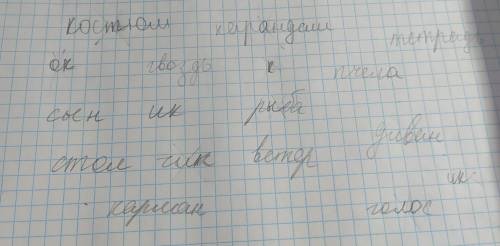 костюм карандаш тетрадь
ок гвоздь к пчела
сын ик рыба
диван
стол чик ветер
ик
карман голос